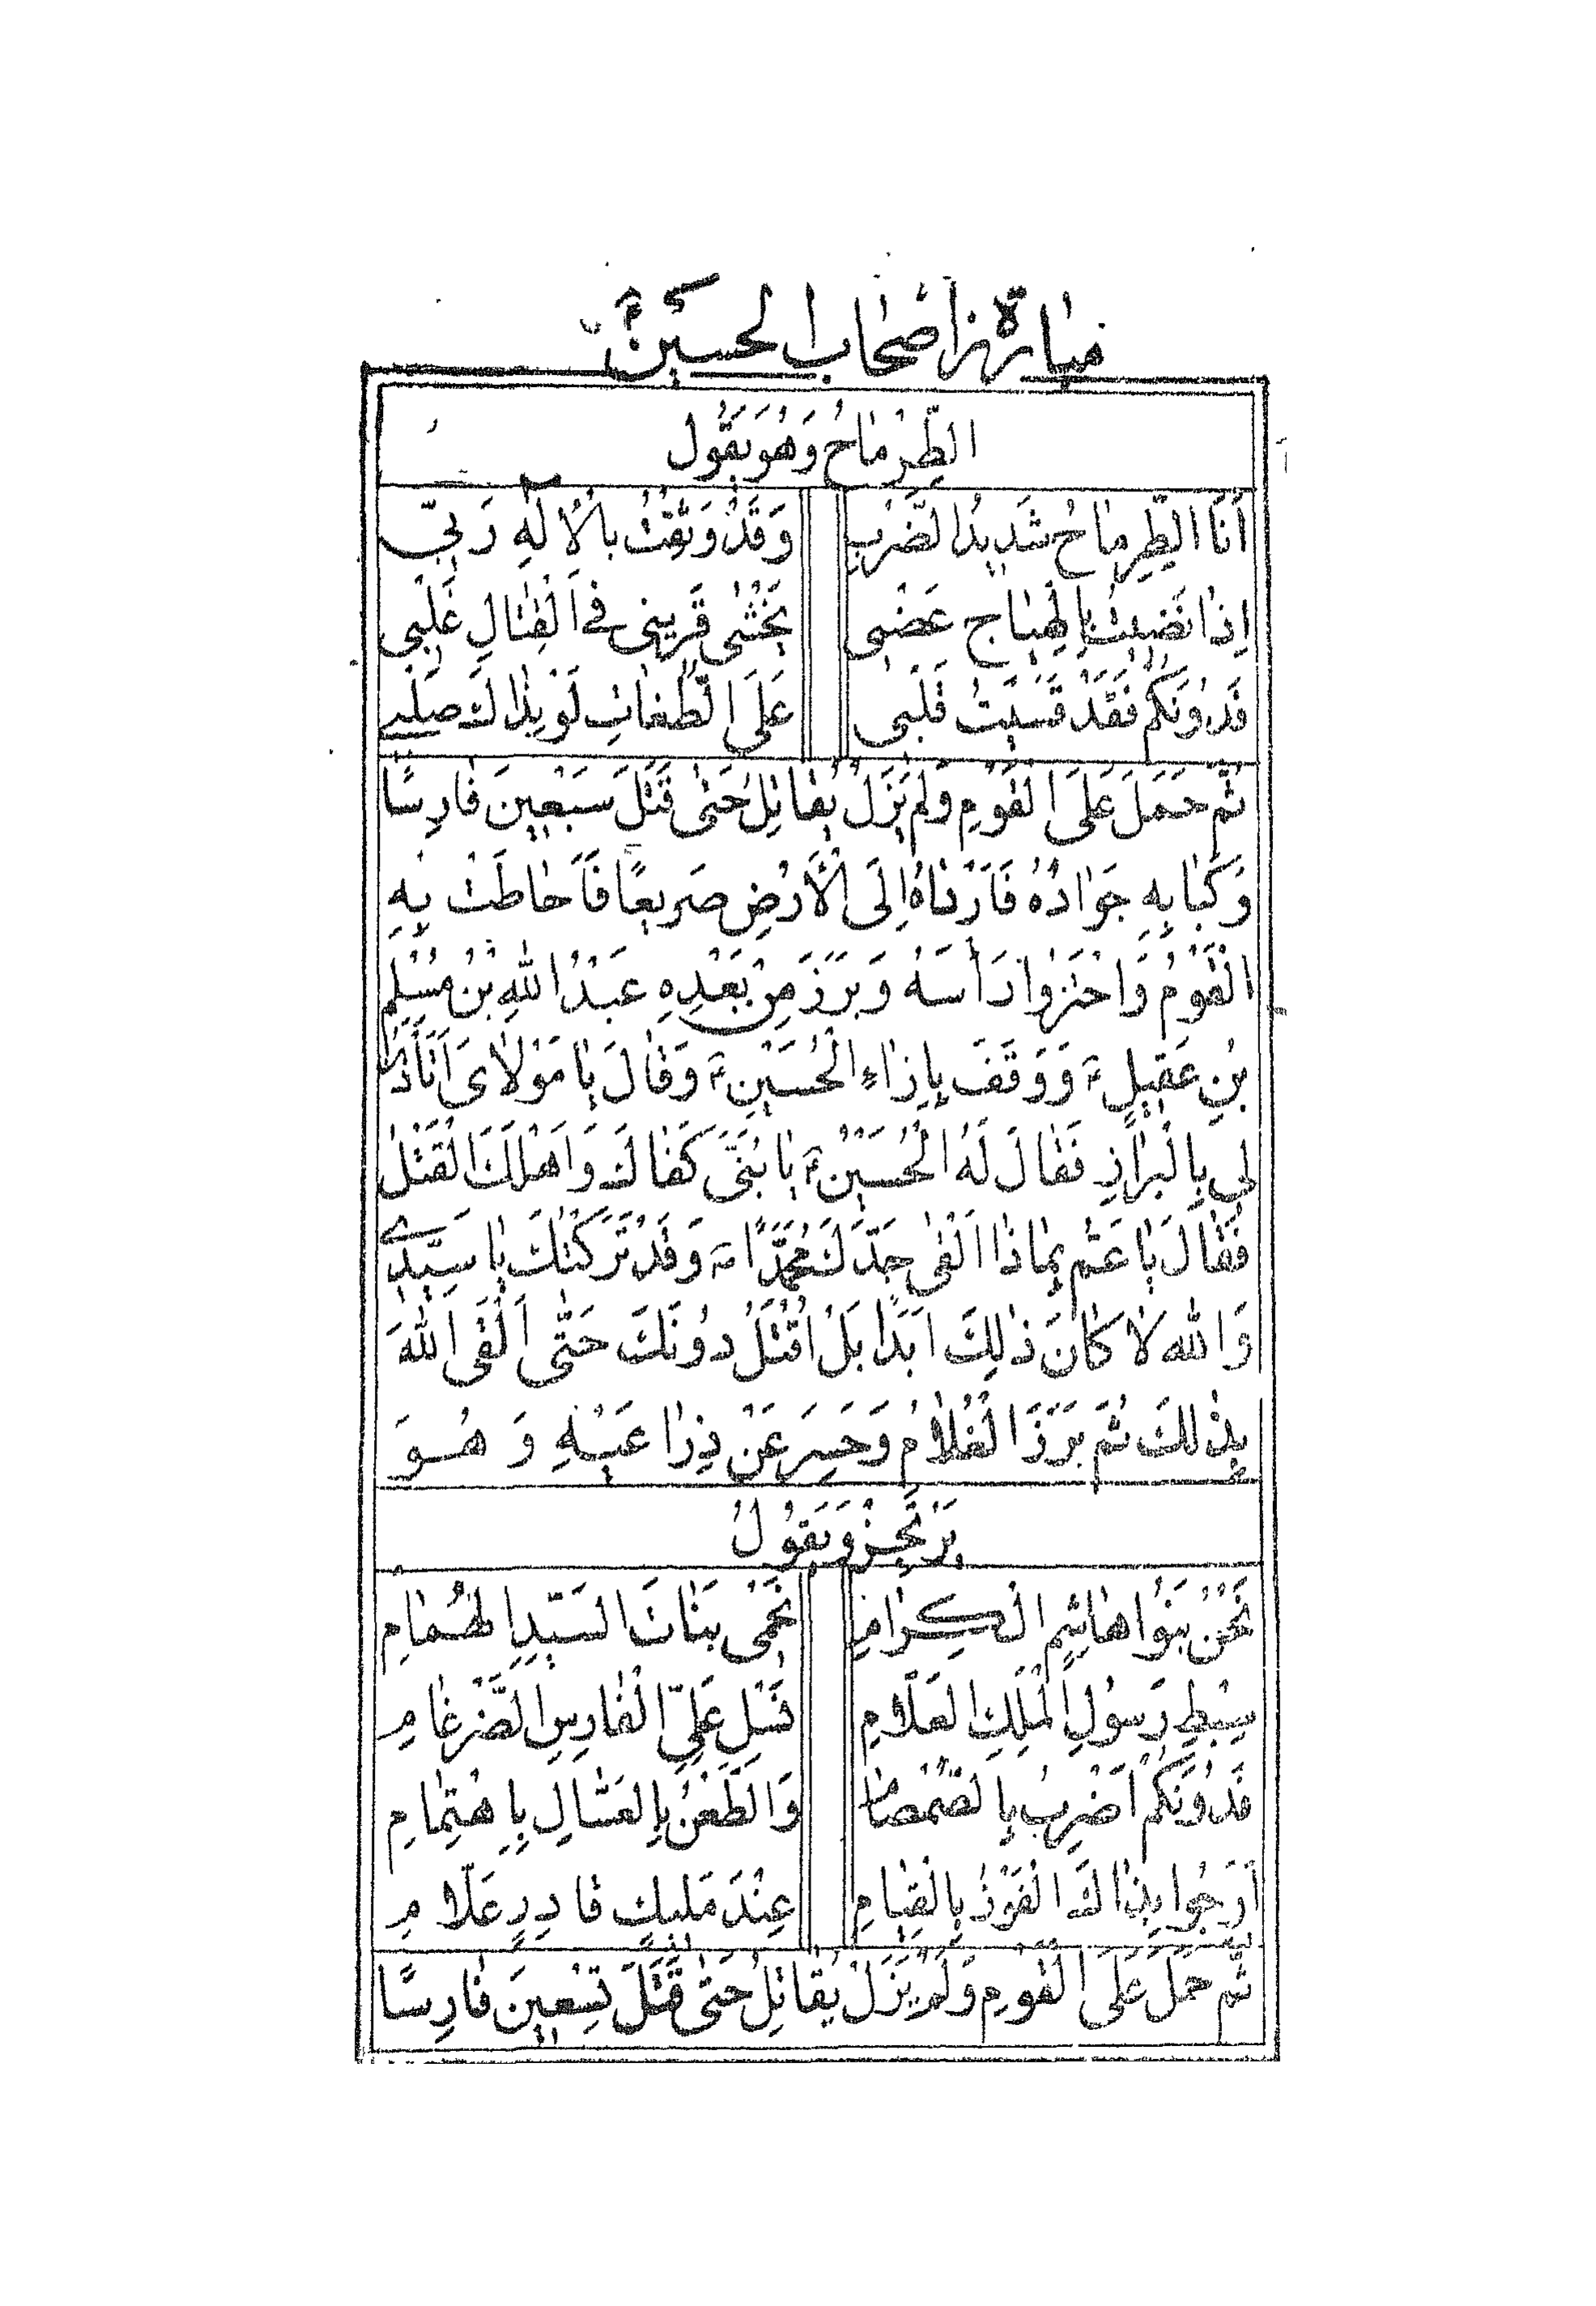 مبارزة اصحاب الحسین ع
الطِّرْمٰاحُ وَهُوَ یَقُولُ
اَنَا الطِّرِمّٰاحُ شَدِیدُ الضَّرْبِ وَقَدْ وَثِقْتُ بِالْاِلٰهِ رَبّی
اِذٰا نَضَیْتُ بِالْهِیٰاجِ عَضْبی یَخْشٰی قَرِینی فِی الْقِتٰالِ غَلْبی
فَدُونَکُمْ فَقَدْ قَسَیْتُ قَلْبی عَلَی الطُّغٰاتِ لَوْ بِذٰاكَ صَلْبی
ثُمَّ حَمَلَ عَلَی الْقَوْمِ وَلَمْ یَزَلْ یُقٰاتِلُ حَتّٰی قَتَلَ سَبْعینَ فٰارِسًا
وَکَبٰا بِهِ جَوٰادُهُ فَاَرْدٰاهُ اِلَی الْاَرْضِ صَریعًا فَاَحٰاطَتْ بِهِ
الْقَوْمُ وَاحْتَزُّوا رَأْسَهُ وَبَرَزَ مِنْ بَعْدِهِ عَبْدُ اللّٰهِ بْنُ مُسْلِمِ
بْنِ عَقیلٍ ع وَوَقَفَ بِاِزٰاءِ الْحُسَیْنِ ع وَقٰالَ یٰا مَوْلٰایَ اَتَأْذَنُ
لی بِالْبَرٰازِ فَقٰالَ لَهُ الْحُسَیْنُ ع یٰا بُنَیَّ کَفٰاكَ وَاَهْلَكَ الْقَتْلُ
فَقٰالَ یٰا عَمُّ بِمٰاذٰا اَلْقٰی جَدَّكَ مُحَمَّدًا ص وَقَدْ تَرَکْتُكَ یٰا سَیِّدی
وَاللّٰهِ لٰا کٰانَ ذٰلِكَ اَبَدًا بَلْ اُقْتَلُ دُونَكَ حَتّٰی اَلْقَی اللّٰهَ
بِذٰلِكَ ثُمَّ بَرَزَ الْغُلٰامُ وَحَسَرَ عَنْ ذِرٰاعَیْهِ وَهُوَ
یَرْتَجِزُ وَیَقُولُ
نَحْنُ بَنُوا هٰاشِمِ الْکِرٰامِ نَحْمی بَنٰاتَ السَّیِّدِ الْهُمٰامِ
سِبْطِ رَسُولِ الْمَلِكِ الْعَلّٰامِ نَسْلِ عَلِیِّ الْفٰارِسِ الضَّرْغٰامِ
فَدُونَکُمْ اَضْرِبُ بِالصَّمْصٰامِ وَالطَّعْنُ بِالْعَسّٰالِ بِاهْتِمٰامِ
اَرْجُوا بِذٰاكَ الْفَوْزَ بِالْقِیٰامِ عِنْدَ مَلیكٍ قٰادِرٍ عَلّٰامِ
ثُمَّ حَمَلَ عَلَی الْقَوْمِ وَلَمْ یَزَلْ یُقٰاتِلُ حَتّٰی قَتَلَ تِسْعینَ فٰارِسًا